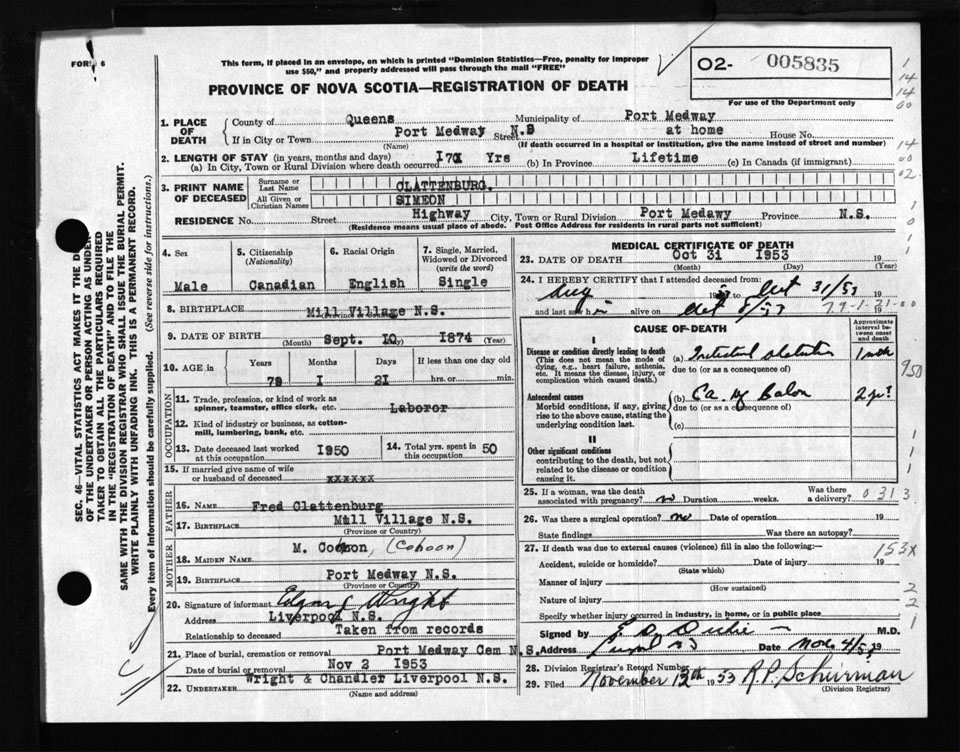 FORM 6
This form, if placed in an envelope, on which is printed "Dominion Statistics—Free, penalty for improper
use $50," and properly addressed will pass through the mail "FREE"
O2- 005835
For use of the Department only
PROVINCE OF NOVA SCOTIA—REGISTRATION OF DEATH
1. PLACE OF DEATH
County of Queens Municipality of Port Medway
If in City or Town Port Medway N.S Street at home House No.
(Name) (If death occurred in a hospital or institution, give the name instead of street and number)
2. LENGTH OF STAY (in years, months and days)
(a) In City, Town or Rural Division where death occurred Yrs (b) In Province Lifetime (c) In Canada (if immigrant)
3. PRINT NAME OF DECEASED
Surname or Last Name CLATTENBURG.
All Given or Christian Names SIMEON
RESIDENCE No. Street Highway City, Town or Rural Division Port Medawy Province N.S.
(Residence means usual place of abode. Post Office Address for residents in rural parts not sufficient)
4. Sex Male
5. Citizenship (Nationality) Canadian
6. Racial Origin English
7. Single, Married, Widowed or Divorced (write the word) Single
8. BIRTHPLACE Mill Village N.S.
(Province or Country)
9. DATE OF BIRTH Sept. IO 1874
(Month) (Day) (Year)
10. AGE in Years Months Days If less than one day old
79 I 2I hrs. or min.
OCCUPATION
11. Trade, profession, or kind of work as
spinner, teamster, office clerk, etc. Laboror
12. Kind of industry or business, as cotton-
mill, lumbering, bank, etc.
13. Date deceased last worked at this occupation I950
14. Total yrs. spent in this occupation 50
15. If married give name of wife
or husband of deceased xxxxxx
FATHER
16. NAME Fred Clattenburg
17. BIRTHPLACE Mill Village N.S.
(Province or Country)
MOTHER
18. MAIDEN NAME M. (Cohoon)
19. BIRTHPLACE Port Medway N.S.
(Province or Country)
20. Signature of informant Wright
Address Liverpool N.S.
Relationship to deceased Taken from records
21. Place of burial, cremation or removal Port Medway Cem N.S.
Date of burial or removal Nov 2 I953
22. UNDERTAKER Wright & Chandler Liverpool N.S.
(Name and address)
MEDICAL CERTIFICATE OF DEATH
23. DATE OF DEATH Oct 3I I953 19
(Month) (Day) (Year)
24. I HEREBY CERTIFY that I attended deceased from:
Aug 19 to Oct 31/53 19
and last saw h alive on Oct /53 19
79-1-21-00
CAUSE OF DEATH
Approximate interval between onset and death
I
Disease or condition directly leading to death
(This does not mean the mode of dying, e.g., heart failure, asthenia, etc. It means the disease, injury, or complication which caused death.)
(a) Intestinal 1 mth
due to (or as a consequence of)
Antecedent causes
Morbid conditions, if any, giving rise to the above cause, stating the underlying condition last.
(b) Ca. of Colon 2 yr?
due to (or as a consequence of)
(c)
II
Other significant conditions
contributing to the death, but not related to the disease or condition causing it.
25. If a woman, was the death associated with pregnancy? no Duration weeks. Was there a delivery?
0313
26. Was there a surgical operation? no Date of operation 19
State findings Was there an autopsy?
27. If death was due to external causes (violence) fill in also the following:
153X
Accident, suicide or homicide? Date of injury 19
(State which)
Manner of injury
(How sustained)
Nature of injury
Specify whether injury occurred in industry, in home, or in public place
Signed by M.D.
Address Date Nov 4/53 19
28. Division Registrar's Record Number
29. Filed November 12th 1953 R.P. Schurman
(Division Registrar)
SEC. 46—VITAL STATISTICS ACT MAKES IT THE DU
OF THE UNDERTAKER OR PERSON ACTING AS UNDER
TAKER TO OBTAIN ALL THE PARTICULARS REQUIRED
IN THE "REGISTRATION OF DEATH" AND TO FILE THE
SAME WITH THE DIVISION REGISTRAR WHO SHALL ISSUE THE BURIAL PERMIT.
WRITE PLAINLY WITH UNFADING INK. THIS IS A PERMANENT RECORD.
Every item of information should be carefully supplied. (See reverse side for instructions.)